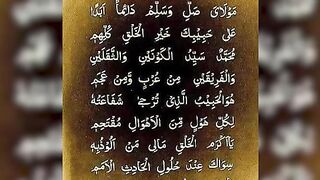 مَوْلَايَ صَلِّ وَسَلِّمْ دَائِمًا أَبَدًا
عَلَى حَبِيبِكَ خَيْرِ الْخَلْقِ كُلِّهِمِ
مُحَمَّدٌ سَيِّدُ الْكَوْنَيْنِ وَالثَّقَلَيْنِ
وَالْفَرِيقَيْنِ مِنْ عُرْبٍ وَّمِنْ عَجَمِ
هُوَ الْحَبِيبُ الَّذِي تُرْجَى شَفَاعَتُهُ
لِكُلِّ هَوْلٍ مِّنَ الْأَهْوَالِ مُقْتَحِمِ
يَا أَكْرَمَ الْخَلْقِ مَالِي مَنْ أَلُوذُ بِهِ
سِوَاكَ عِنْدَ حُلُولِ الْحَادِثِ الْأَمَمِ